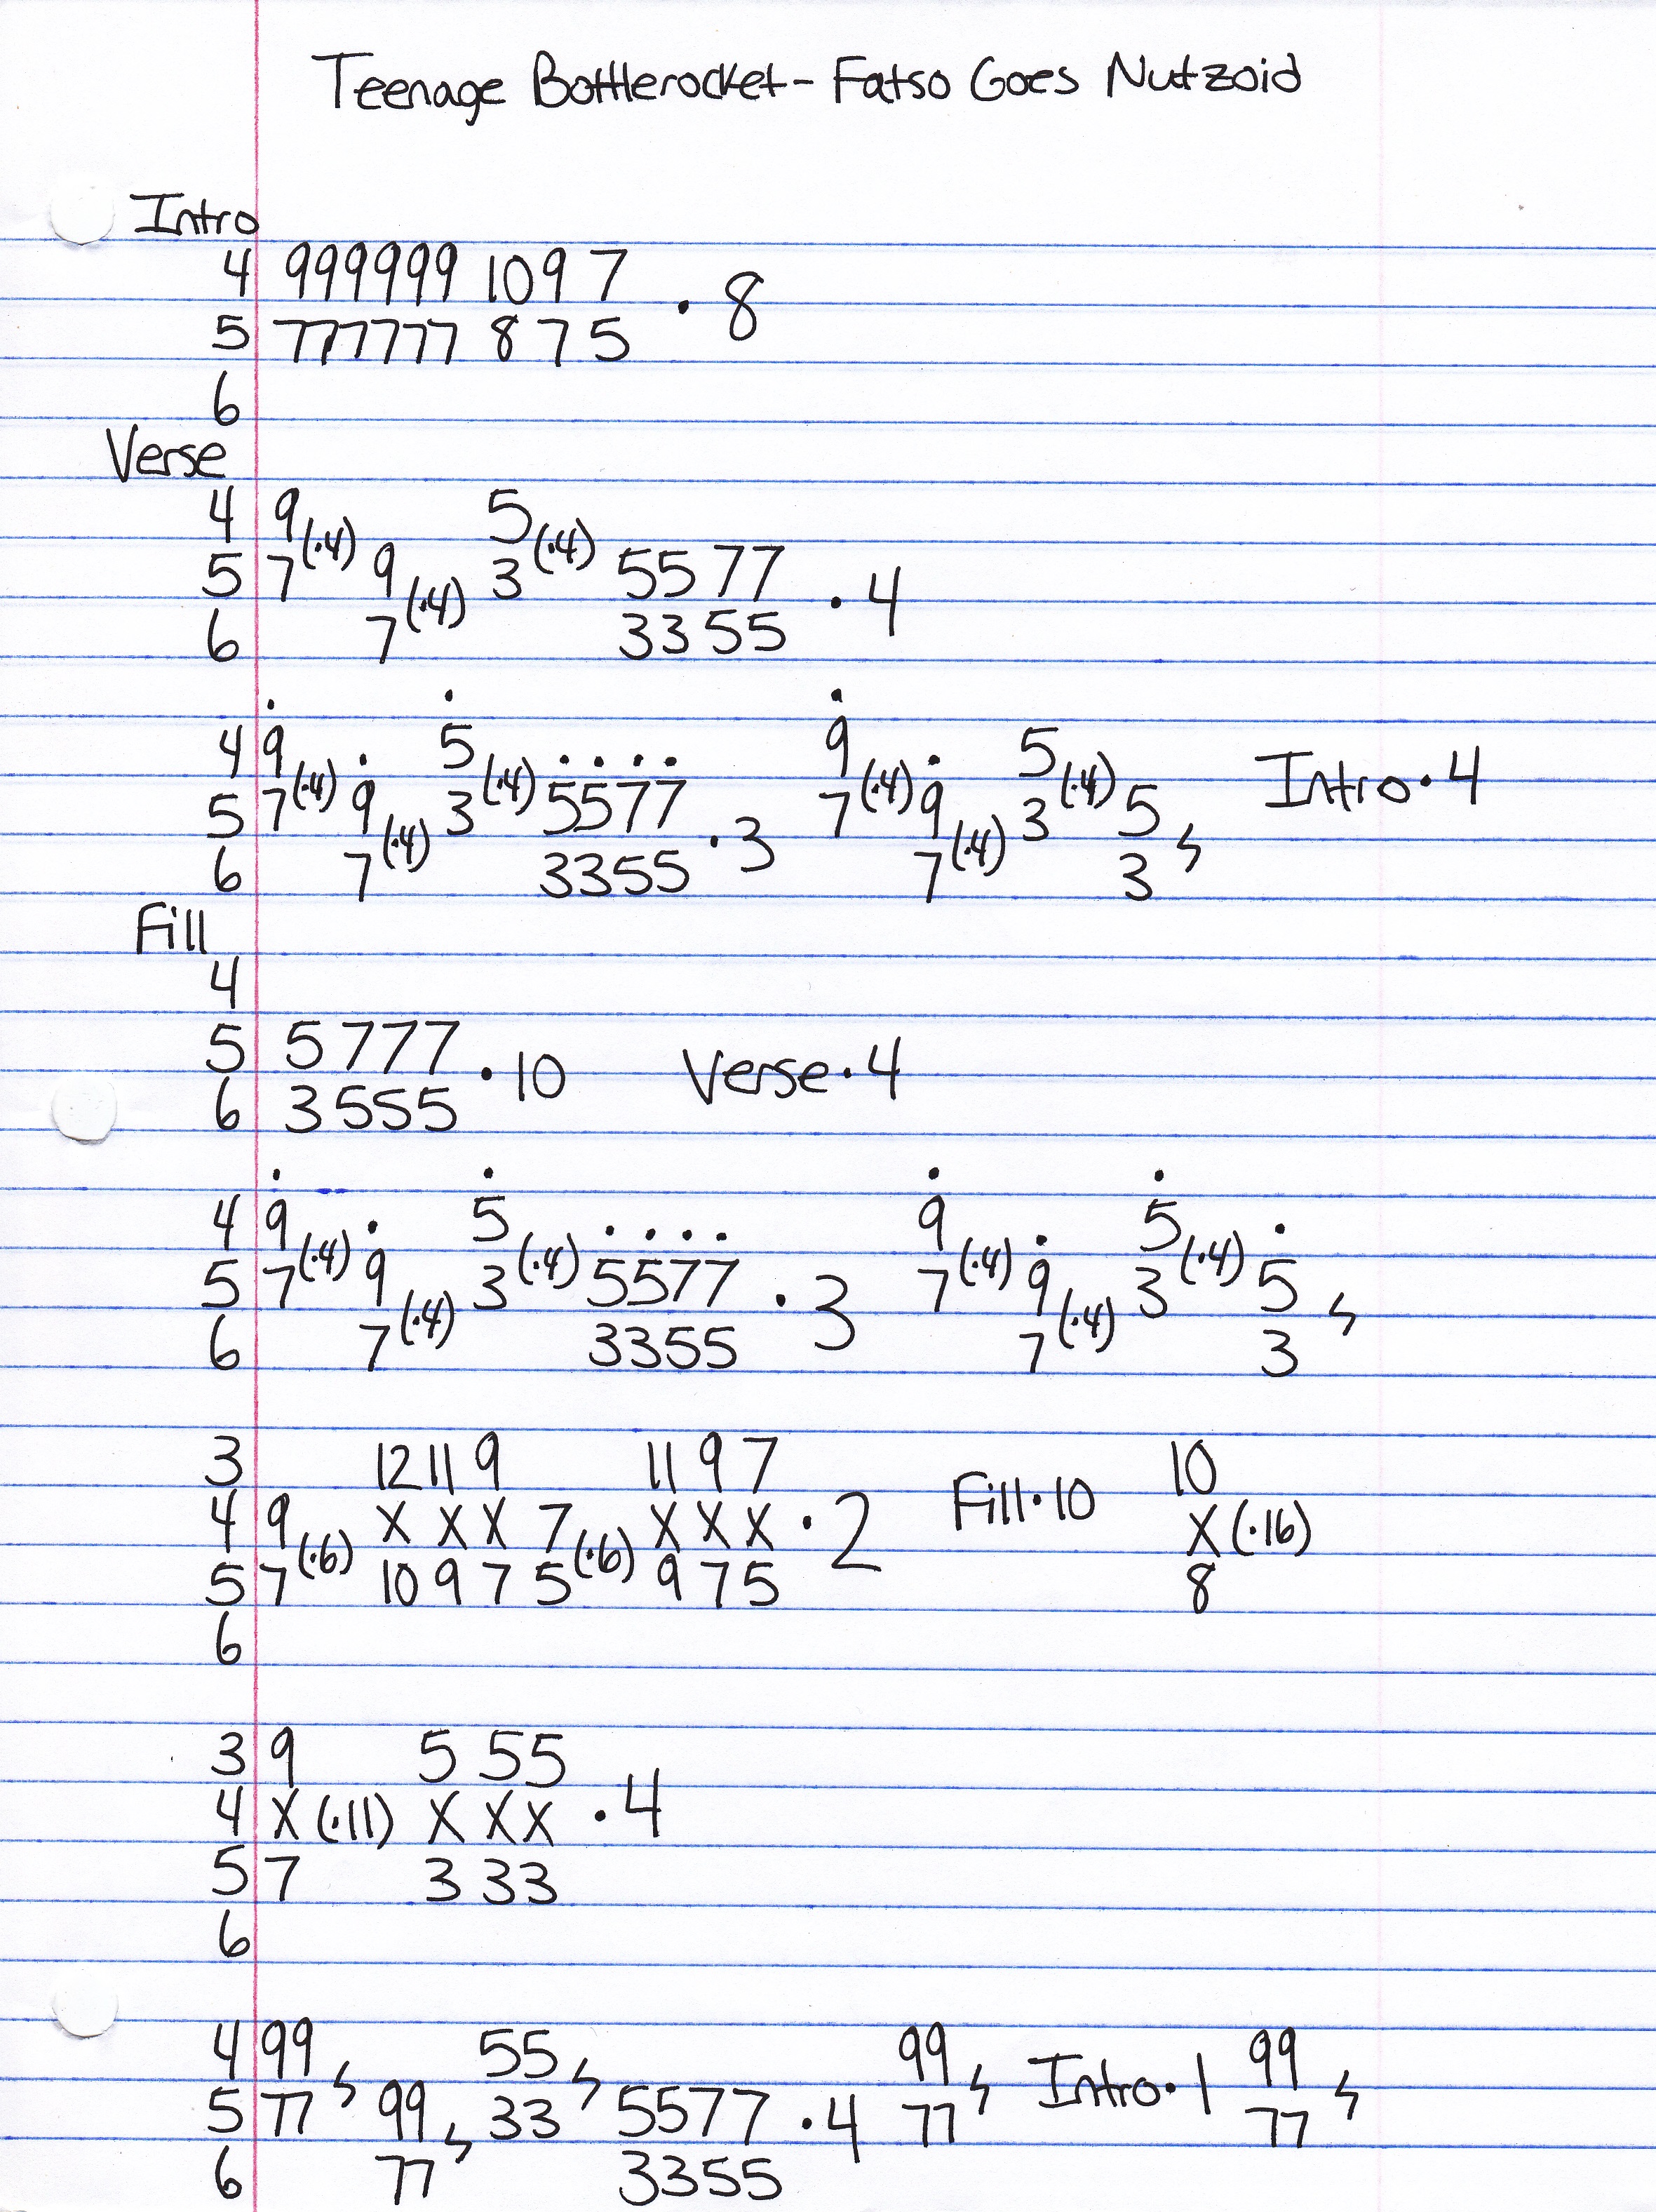 Teenage Bottlerocket - Fatso Goes Nutzoid
Intro
4 999999 10 9 7
5 777777 8 7 5 · 8
6
Verse
4 9 (·4) 5 (·4)
5 7 9 (·4) 3 55 77 · 4
6 7 33 55
4 9 (·4) 5 (·4) 9 (·4) 5 (·4) Intro · 4
5 7 9 (·4) 3 5577 · 3 7 9 (·4) 3 5
6 7 3355 7 3
Fill
4
5 5 777 · 10 Verse · 4
6 3 555
4 9 (·4) 5 (·4) 9 (·4) 5 (·4)
5 7 9 (·4) 3 5577 · 3 7 9 (·4) 3 5
6 7 3355 7 3
3 12 11 9 11 9 7 10
4 9 (·6) X X X 7 (·6) X X X · 2 Fill · 10 X (·16)
5 7 10 9 7 5 9 7 5 8
6
3 9 5 55
4 X (·11) X XX · 4
5 7 3 33
6
4 99 55 99 99
5 77 99 33 5577 · 4 77 Intro · 1 77
6 77 3355